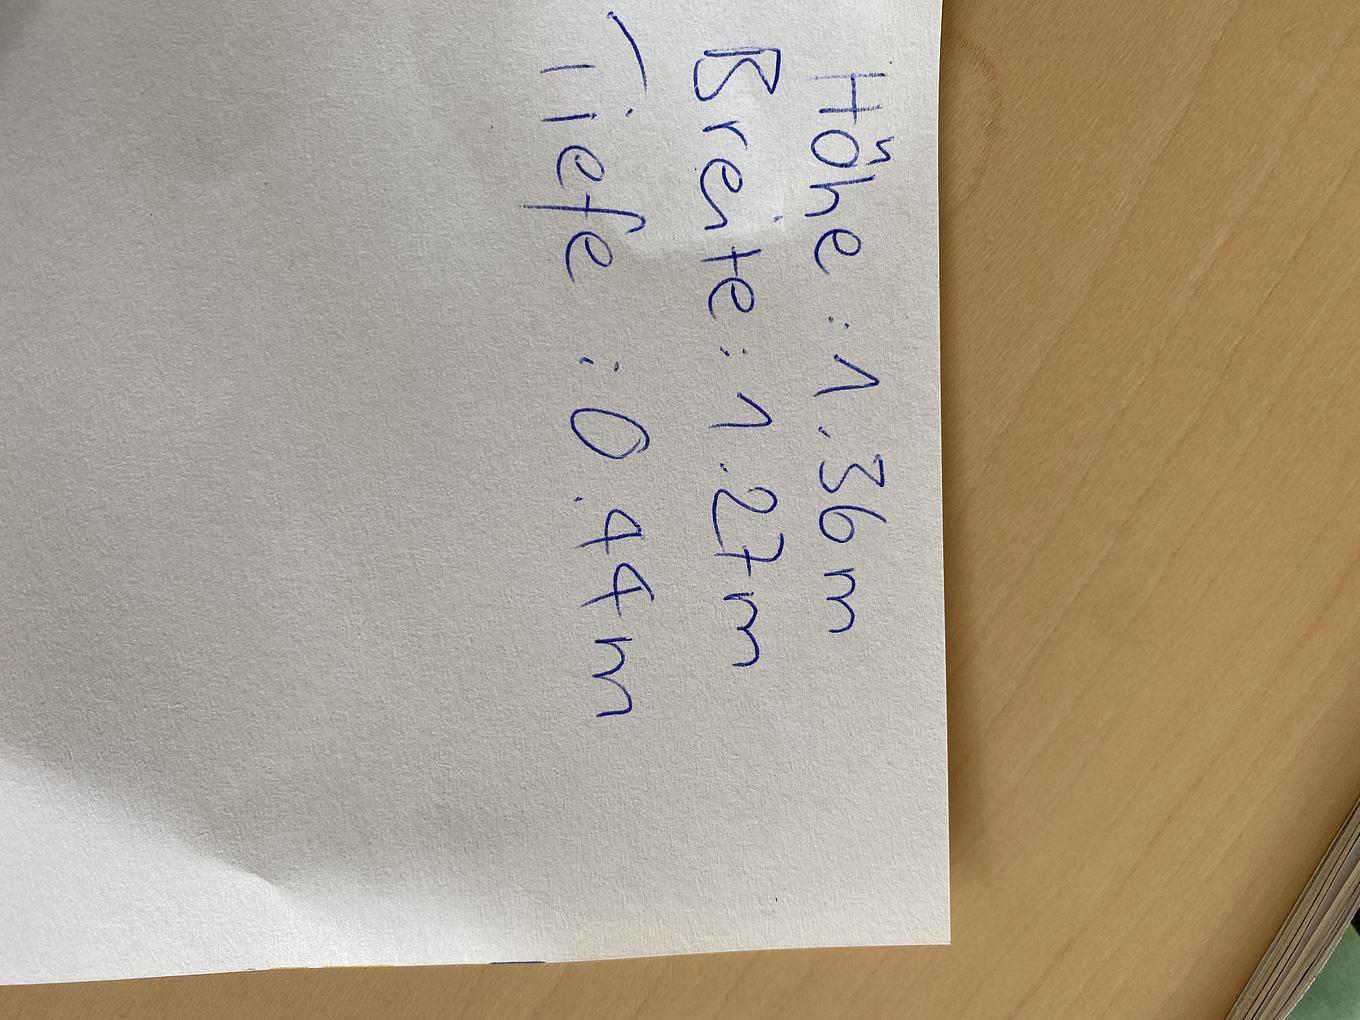 Höhe : 1.36m
Breite : 1.27m
Tiefe : 0.44m